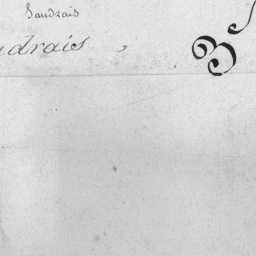 Saudrais
udrais,
3